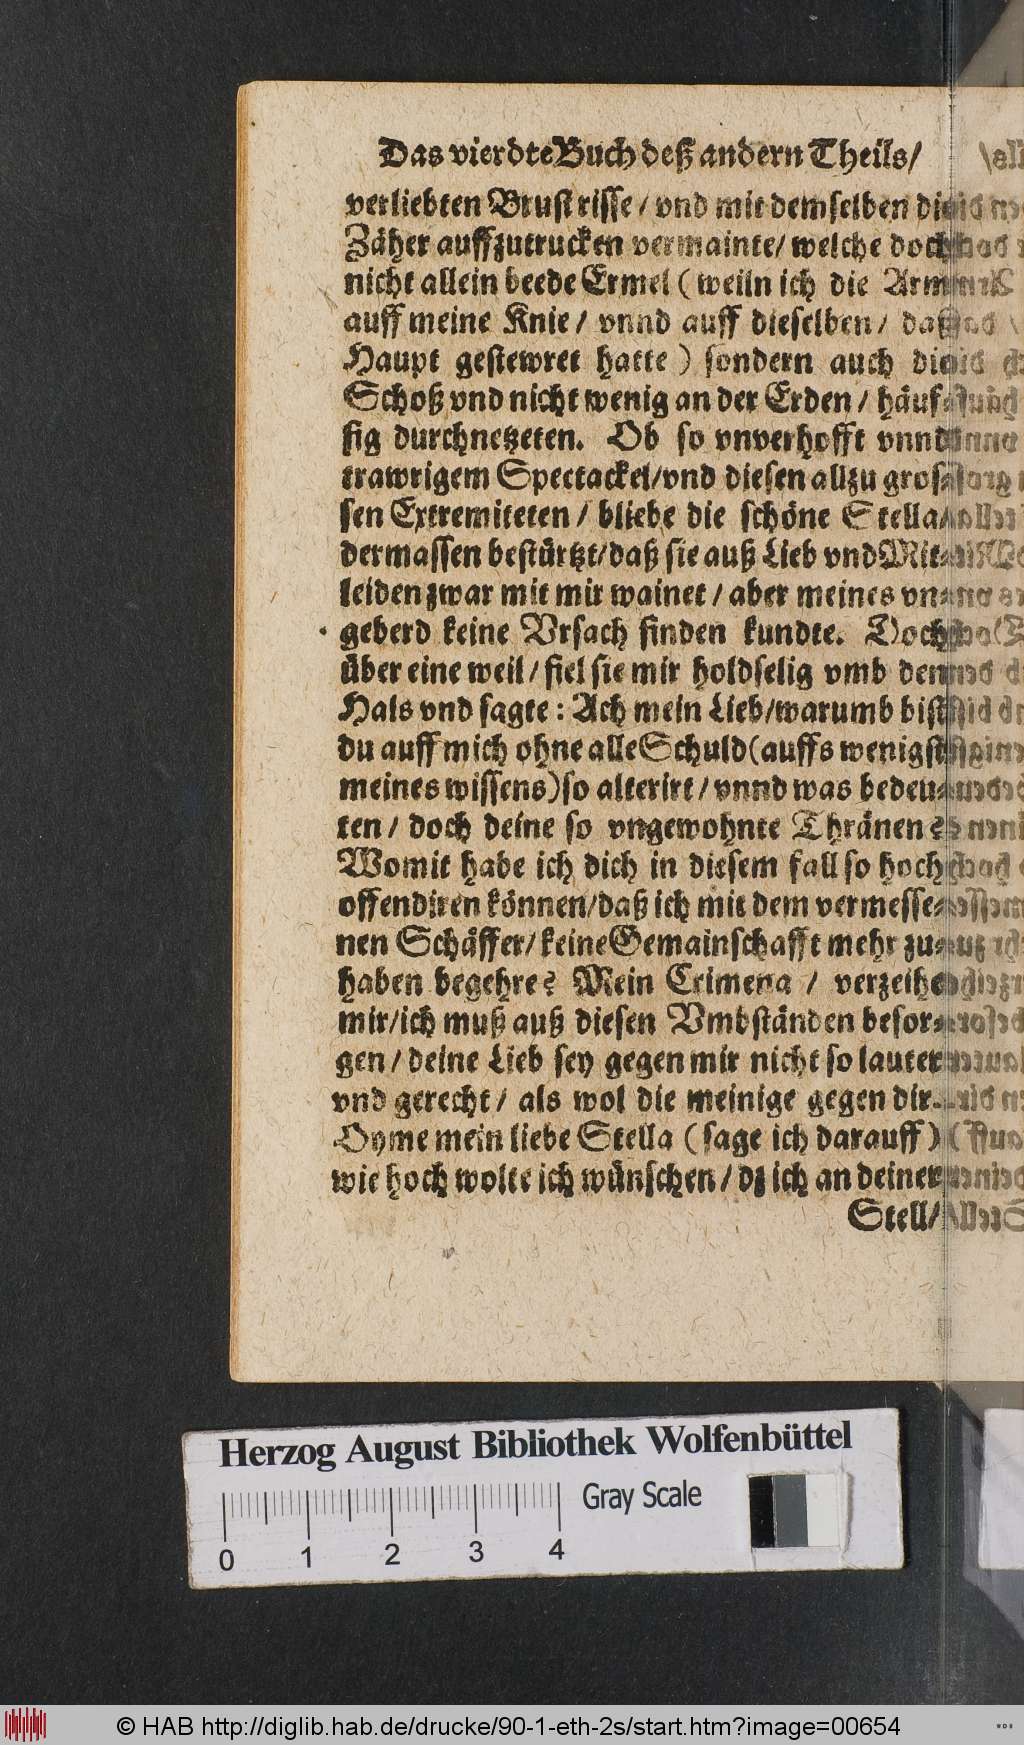 Das vierdte Buch deß andern Theils/
verliebten Brust risse / vnd mit demselben die
Zäher auffzutrucken vermainte/ welche doch
nicht allein beede Ermel ( weiln ich die Arm
auff meine Knie / vnnd auff dieselben / daß
Haupt gestewret hatte ) sondern auch die
Schoß vnd nicht wenig an der Erden / häuf-
fig durchnetzeten. Ob so vnverhofft vnnd
trawrigem Spectackel/vnd diesen allzu gros-
sen Extremiteten / bliebe die schöne Stella/
dermassen bestürtzt/daß sie auß Lieb vnd Mit-
leiden zwar mit mir wainet / aber meines vn-
geberd keine Vrsach finden kundte. Doch
über eine weil / fiel sie mir holdselig vmb den
Hals vnd sagte : Ach mein Lieb/warumb bist
du auff mich ohne alle Schuld (auffs wenigst
meines wissens) so alterirt / vnnd was bedeu-
ten / doch deine so vngewohnte Thränen?
Womit habe ich dich in diesem fall so hoch
offendiren können/daß ich mit dem vermesse-
nen Schäffer/ keine Gemainschafft mehr zu
haben begehre? Mein Crimena / verzeihe
mir/ich muß auß diesen Vmbständen besor-
gen / deine Lieb sey gegen mir nicht so lauter
vnd gerecht / als wol die meinige gegen dir.
Oyme mein liebe Stella ( sage ich darauff )
wie hoch wolte ich wünschen / dz ich an deiner
Stell/
Herzog August Bibliothek Wolfenbüttel
Gray Scale
0 1 2 3 4
© HAB http://diglib.hab.de/drucke/90-1-eth-2s/start.htm?image=00654